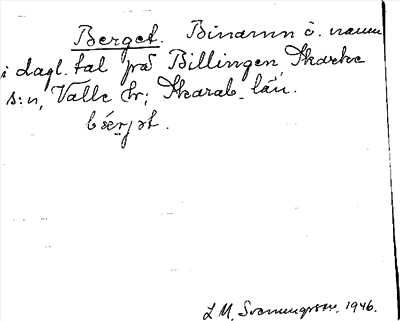 Berget. Binamn o. namn
i dagl. tal på Billingen, Skarke
s:n, Valle hr; Skarab. län.
bæ̀rjət.
L M. Svenungsson. 1946.